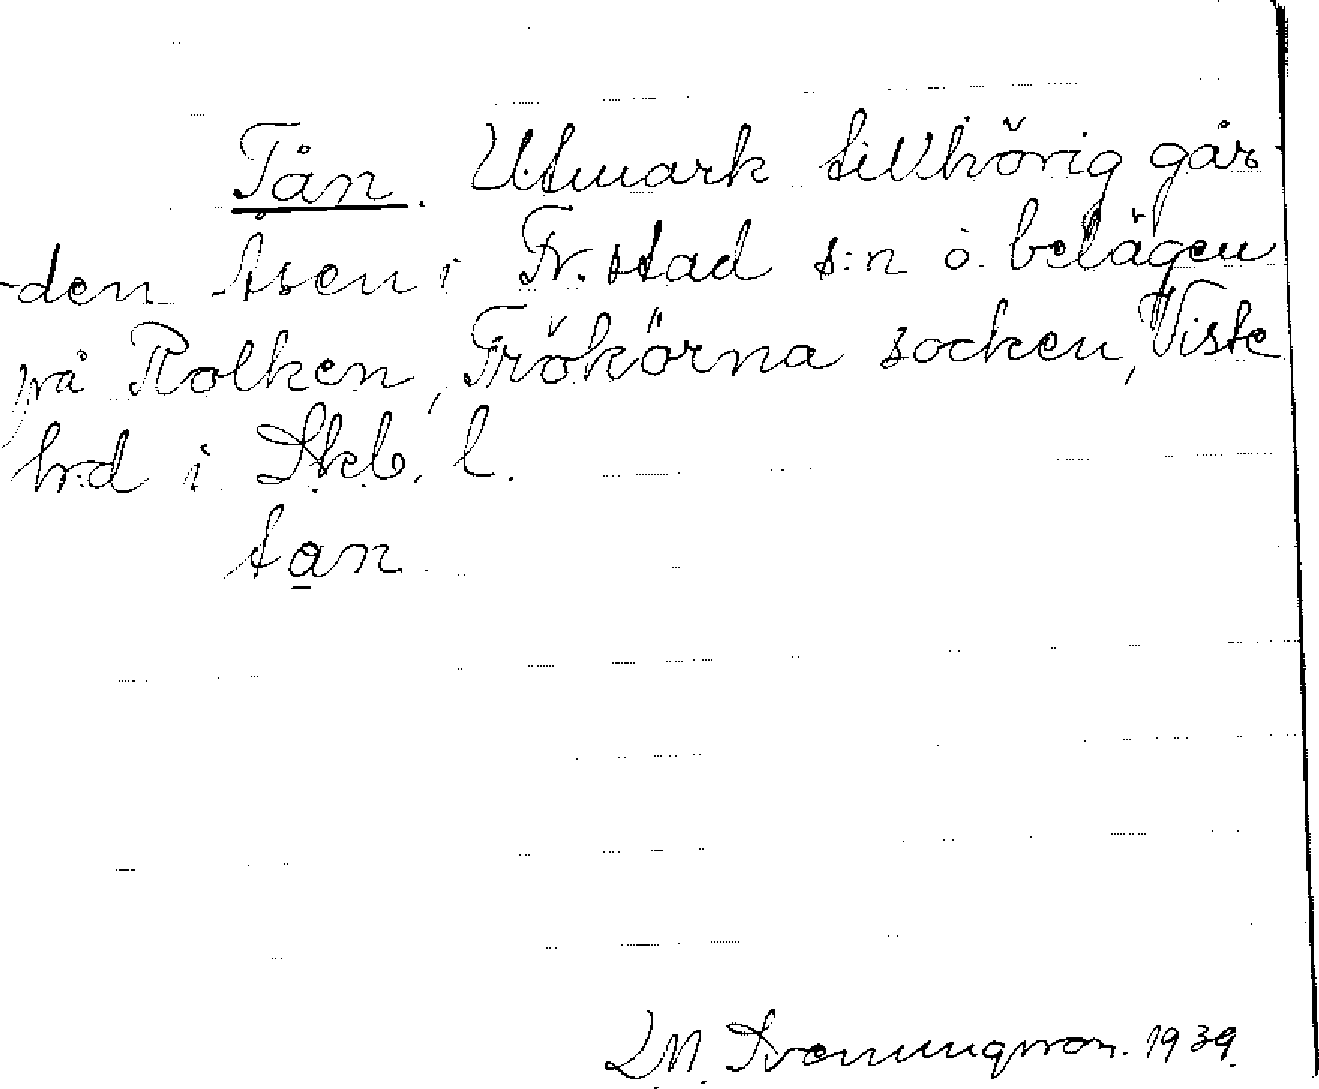 Tån. Utmark tillhörig går-
den Åsen i Fr.stad s:n o. belägen
på Kolken, Frökörna socken, Viste
h:d i Skb. l.
tan
L.M. Svenungsson. 1939.